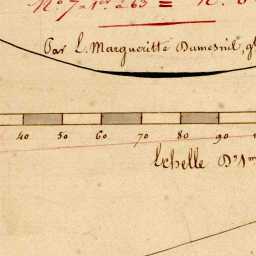 Par L. Margueritte Dumesnil, g
40 50 60 70 80 90
Echelle D'1 m